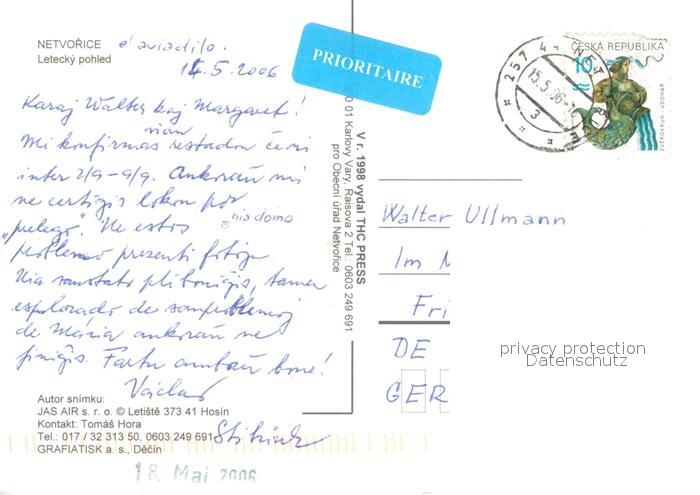 NETVOŘICE el aviadilo.
Letecký pohled
14.5.2006
Karaj Walter kaj Margaret!
Mi konfirmas vian restadon ĉe ni
inter 2/9 - 9/9. Ankoraŭ mi
ne certiĝis lokon por
"prelego". Ne estos nia domo
problemo prezenti fotojn.
Nia sanstato pliboniĝis, tamen
esplorado de sanproblemoj
de Mária ankoraŭ ne
finiĝis. Fartu ambaŭ bone!
Václav
Autor snímku:
JAS AIR s. r. o. © Letiště 373 41 Hosín
Kontakt: Tomáš Hora
Tel.: 017 / 32 313 50, 0603 249 691
GRAFIATISK a. s., Děčín
18. Mai 2006
PRIORITAIRE
V r. 1998 vydal THC PRESS
01 Karlovy Vary, Raisova 2 Tel.: 0603 249 691
pro Obecní úřad Netvořice
ČESKA REPUBLIKA
10
ZVĚROKRUH - VODNÁŘ
257 44
15.5.06
3
Walter Ullmann
Im
Fri
DE
GER
privacy protection
Datenschutz